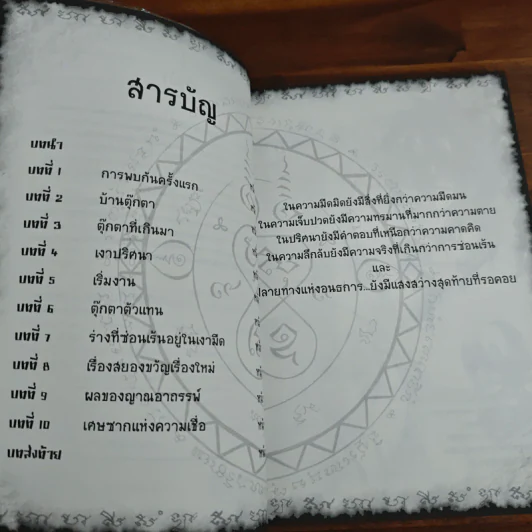 สารบัญ
บทนำ
บทที่ 1 การพบกันครั้งแรก
บทที่ 2 บ้านตุ๊กตา
บทที่ 3 ตุ๊กตาที่เกินมา
บทที่ 4 เงาปริศนา
บทที่ 5 เริ่มงาน
บทที่ 6 ตุ๊กตาตัวแทน
บทที่ 7 ร่างที่ซ่อนเร้นอยู่ในเงามืด
บทที่ 8 เรื่องสยองขวัญเรื่องใหม่
บทที่ 9 ผลของญาณอาถรรพ์
บทที่ 10 เศษซากแห่งความเชื่อ
บทส่งท้าย
ในความมืดมิดยังมีสิ่งที่ยิ่งกว่าความมืดมน
ในความเจ็บปวดยังมีความทรมานที่มากกว่าความตาย
ในปริศนายังมีคำตอบที่เหนือกว่าความคาดคิด
ในความลึกลับยังมีความจริงที่เกินกว่าการซ่อนเร้น
และ
ปลายทางแห่งอนธการ...ยังมีแสงสว่างสุดท้ายที่รอคอย